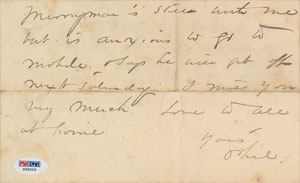 Merryman is still with me
but is anxious to go to
Mobile. Says he will get off
next Saturday. I miss you
very much. Love to all
at home.
Yours
Phil.
PSA/DNA